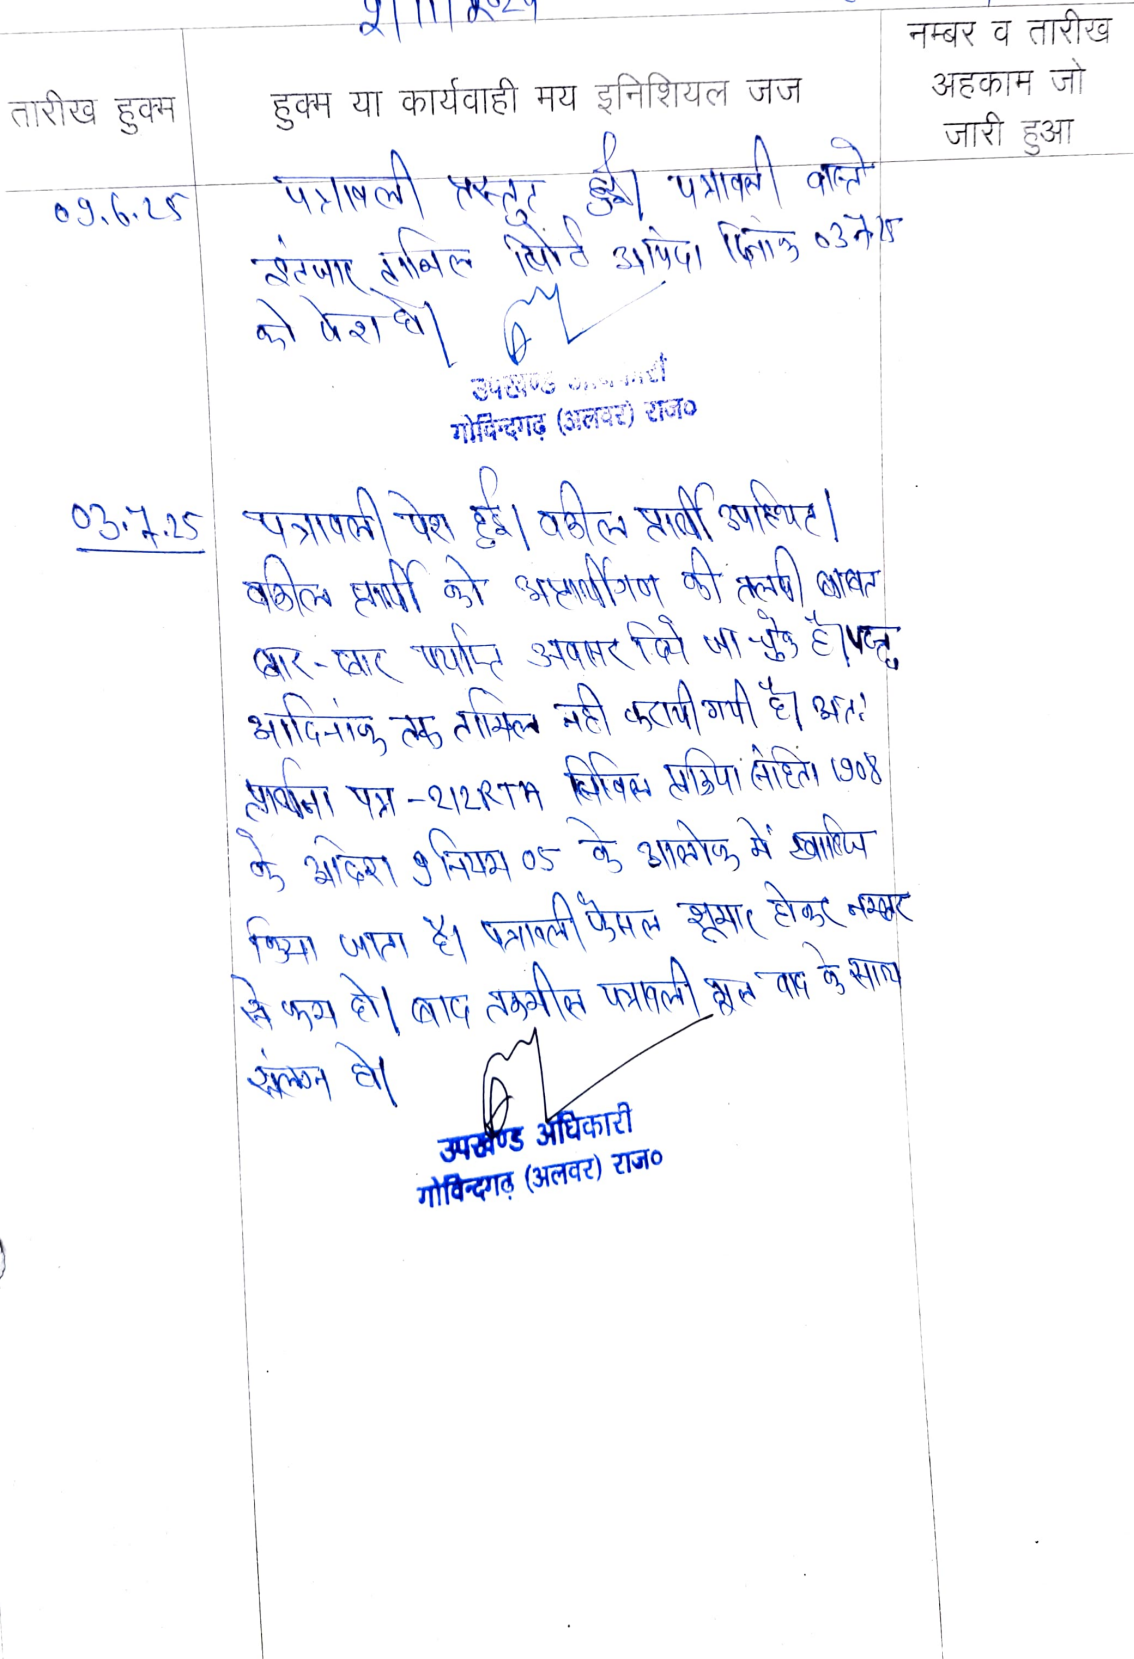 2/11/2024
तारीख हुक्म
हुक्म या कार्यवाही मय इनिशियल जज
नम्बर व तारीख
अहकाम जो
जारी हुआ
09.6.25
पत्रावली प्रस्तुत हुई। पत्रावली वास्ते
इंतजार तामिल रिपोर्ट आईंदा दिनांक 03.7.25
को पेश हो।
उपखण्ड अधिकारी
गोविन्दगढ़ (अलवर) राज०
03.7.25
पत्रावली पेश हुई। वकील प्रार्थी उपस्थित।
वकील प्रार्थी को अप्रार्थीगण की तलबी बाबत
बार-बार पर्याप्त अवसर दिये जा चुके है। परन्तु
आदिनांक तक तामिल नही करायी गयी है। अतः
प्रार्थना पत्र -212RTA सिविल प्रक्रिया संहिता 1908
के आदेश 9 नियम 05 के आलोक में खारिज
किया जाता है। पत्रावली फैसल शूमार होकर नम्बर
से कम हो। बाद तकमील पत्रावली मूल वाद के साथ
संलग्न हो।
उपखण्ड अधिकारी
गोविन्दगढ़ (अलवर) राज०